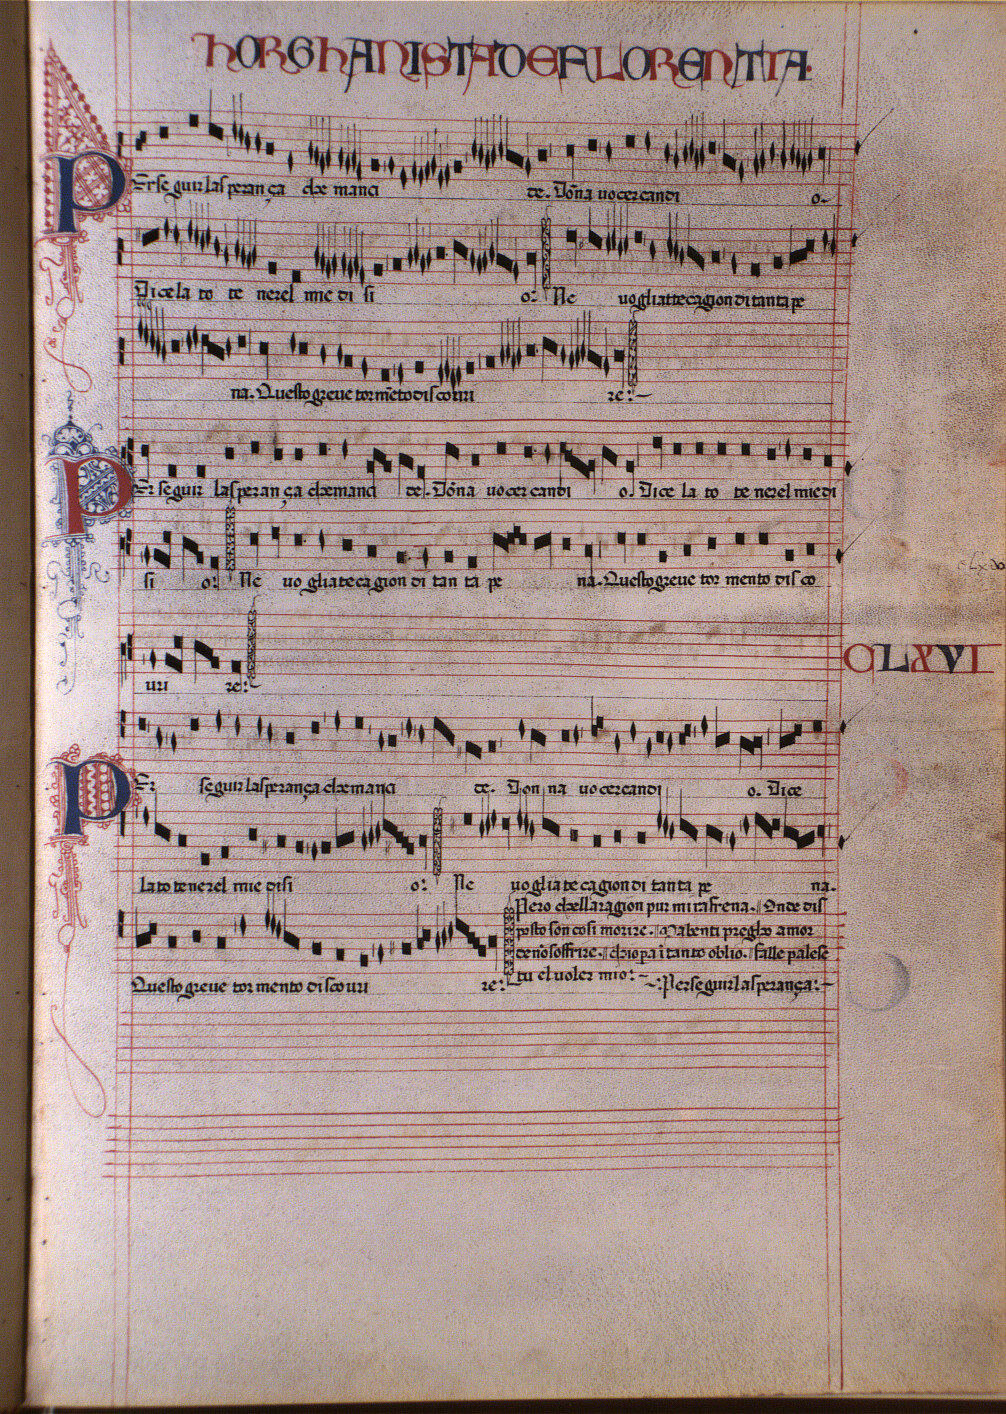 HORGHANISTA DE FLORENTIA.
PErse guir las peran ça che manci de. Dōna uo cer candi o.
Dice la to te nerel mie di si o: Ne uo gliatte cagion di tanta pe
na. Questo greve tor mēto di sco uri re:
PEr se guir las peran ça che manci de. Dōna uo cer candi o. Dice la to te nerel mie di
si o: Ne uo glia te ca gion di tan ta pe na. Questo greve tor mento dis co
uri re:
CLXVI
PEr seguir lasperança che manci de. Don na uo cercandi o. Dice
La to tenerel mie disi o: Ne uo glia te cagion di tanta pe na.
Pero chella ragion pur mi rafrena. Onde dis
posto son cosi morire. Ma benti pregho amor
che nō soffrire. chio p̱a ī tanto oblio. falle palese
Questo greve tor mento discouri re:
tu el voler mio: Perseguir lasperança: